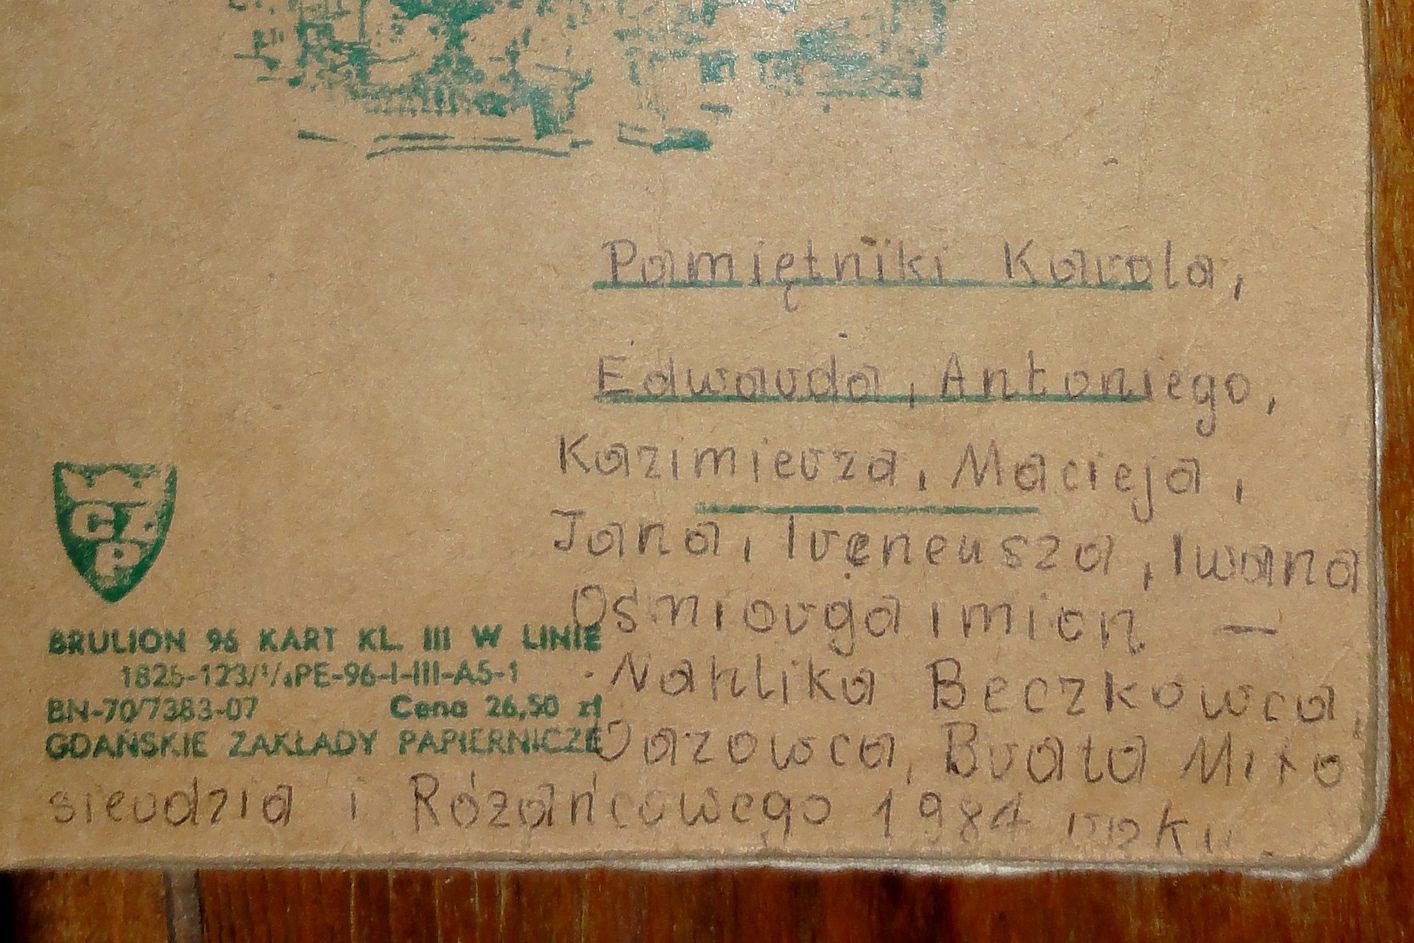 Pamiętniki Karola,
Edwarda, Antoniego,
Kazimierza, Macieja,
Jana, Ireneusza, Iwana
Ośmiorga imion —
Nahlika Beczkowca,
Oazowca, Brata Miło
sierdzia i Różańcowego 1984 roku.
CZP
BRULION 96 KART KL. III W LINIE
1825-123/¹/₄PE-96-I-III-A5-1
BN-70/7383-07 Cena 26,50 zł
GDAŃSKIE ZAKŁADY PAPIERNICZE